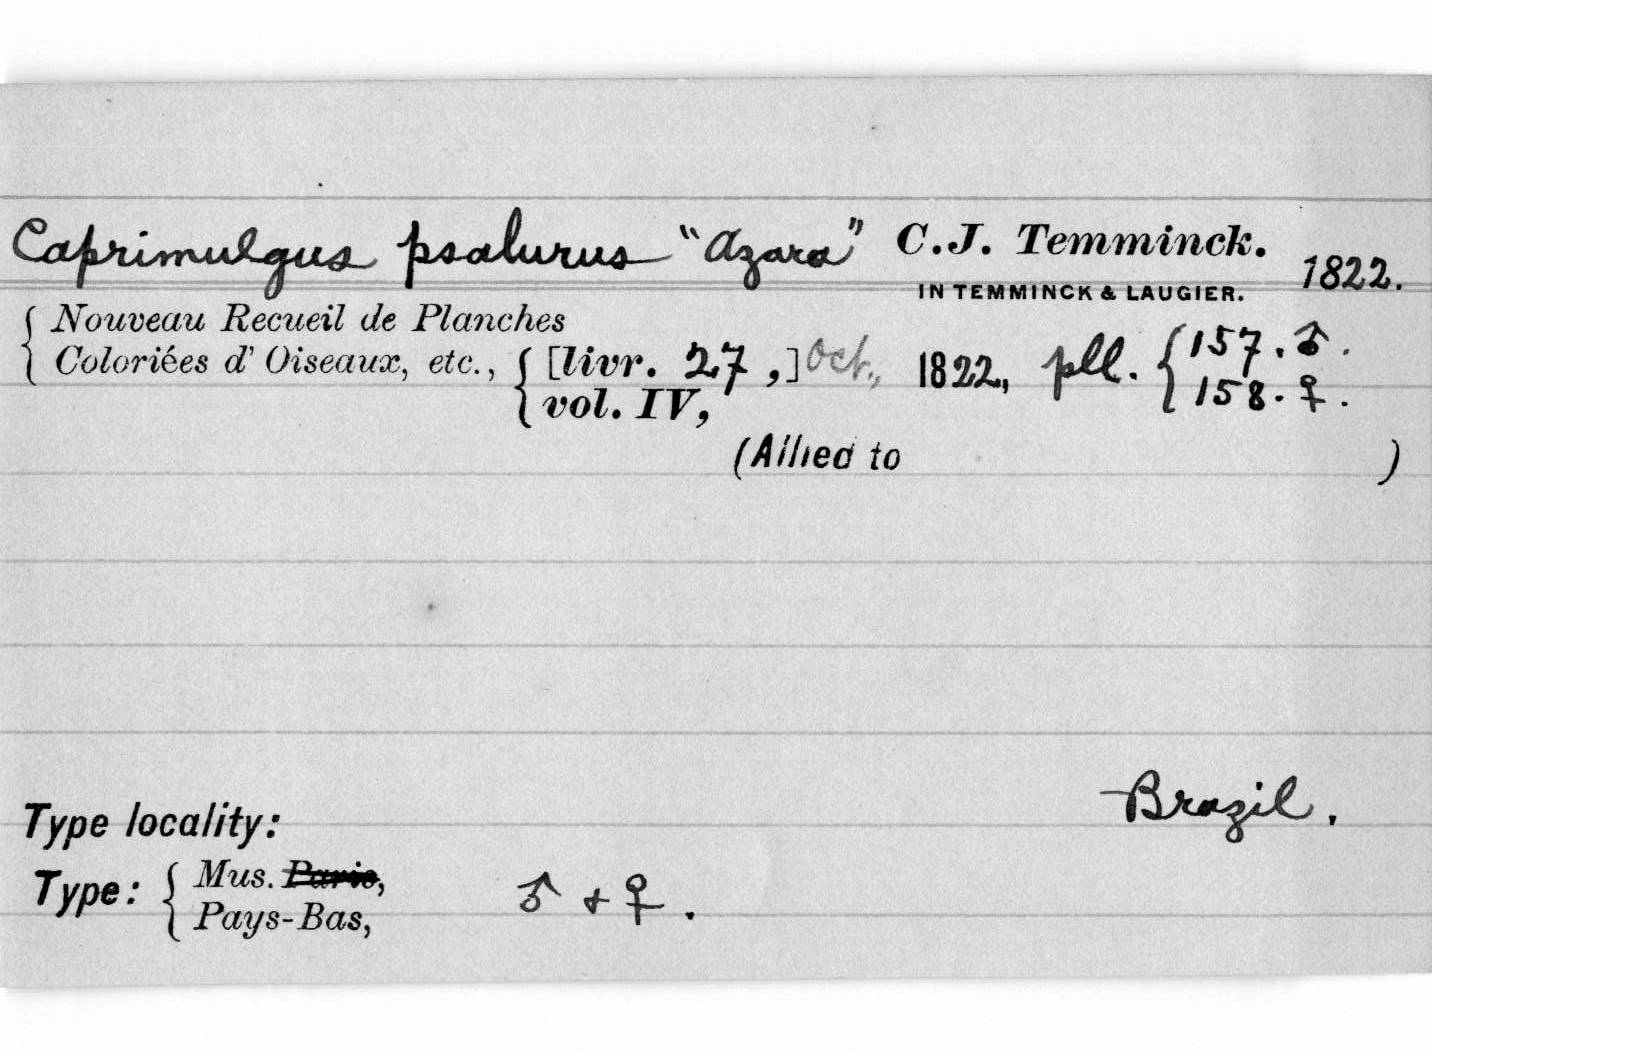 Caprimulgus psalurus "Azara" C.J. Temminck. 1822.
IN TEMMINCK & LAUGIER.
Nouveau Recueil de Planches
Coloriées d' Oiseaux, etc., [livr. 27,] Oct., 1822, pll. 157. ♂.
vol. IV, 158. ♀.
(Allied to )
Brazil.
Type locality:
Type: Mus. Paris,
Pays-Bas, ♂ + ♀.